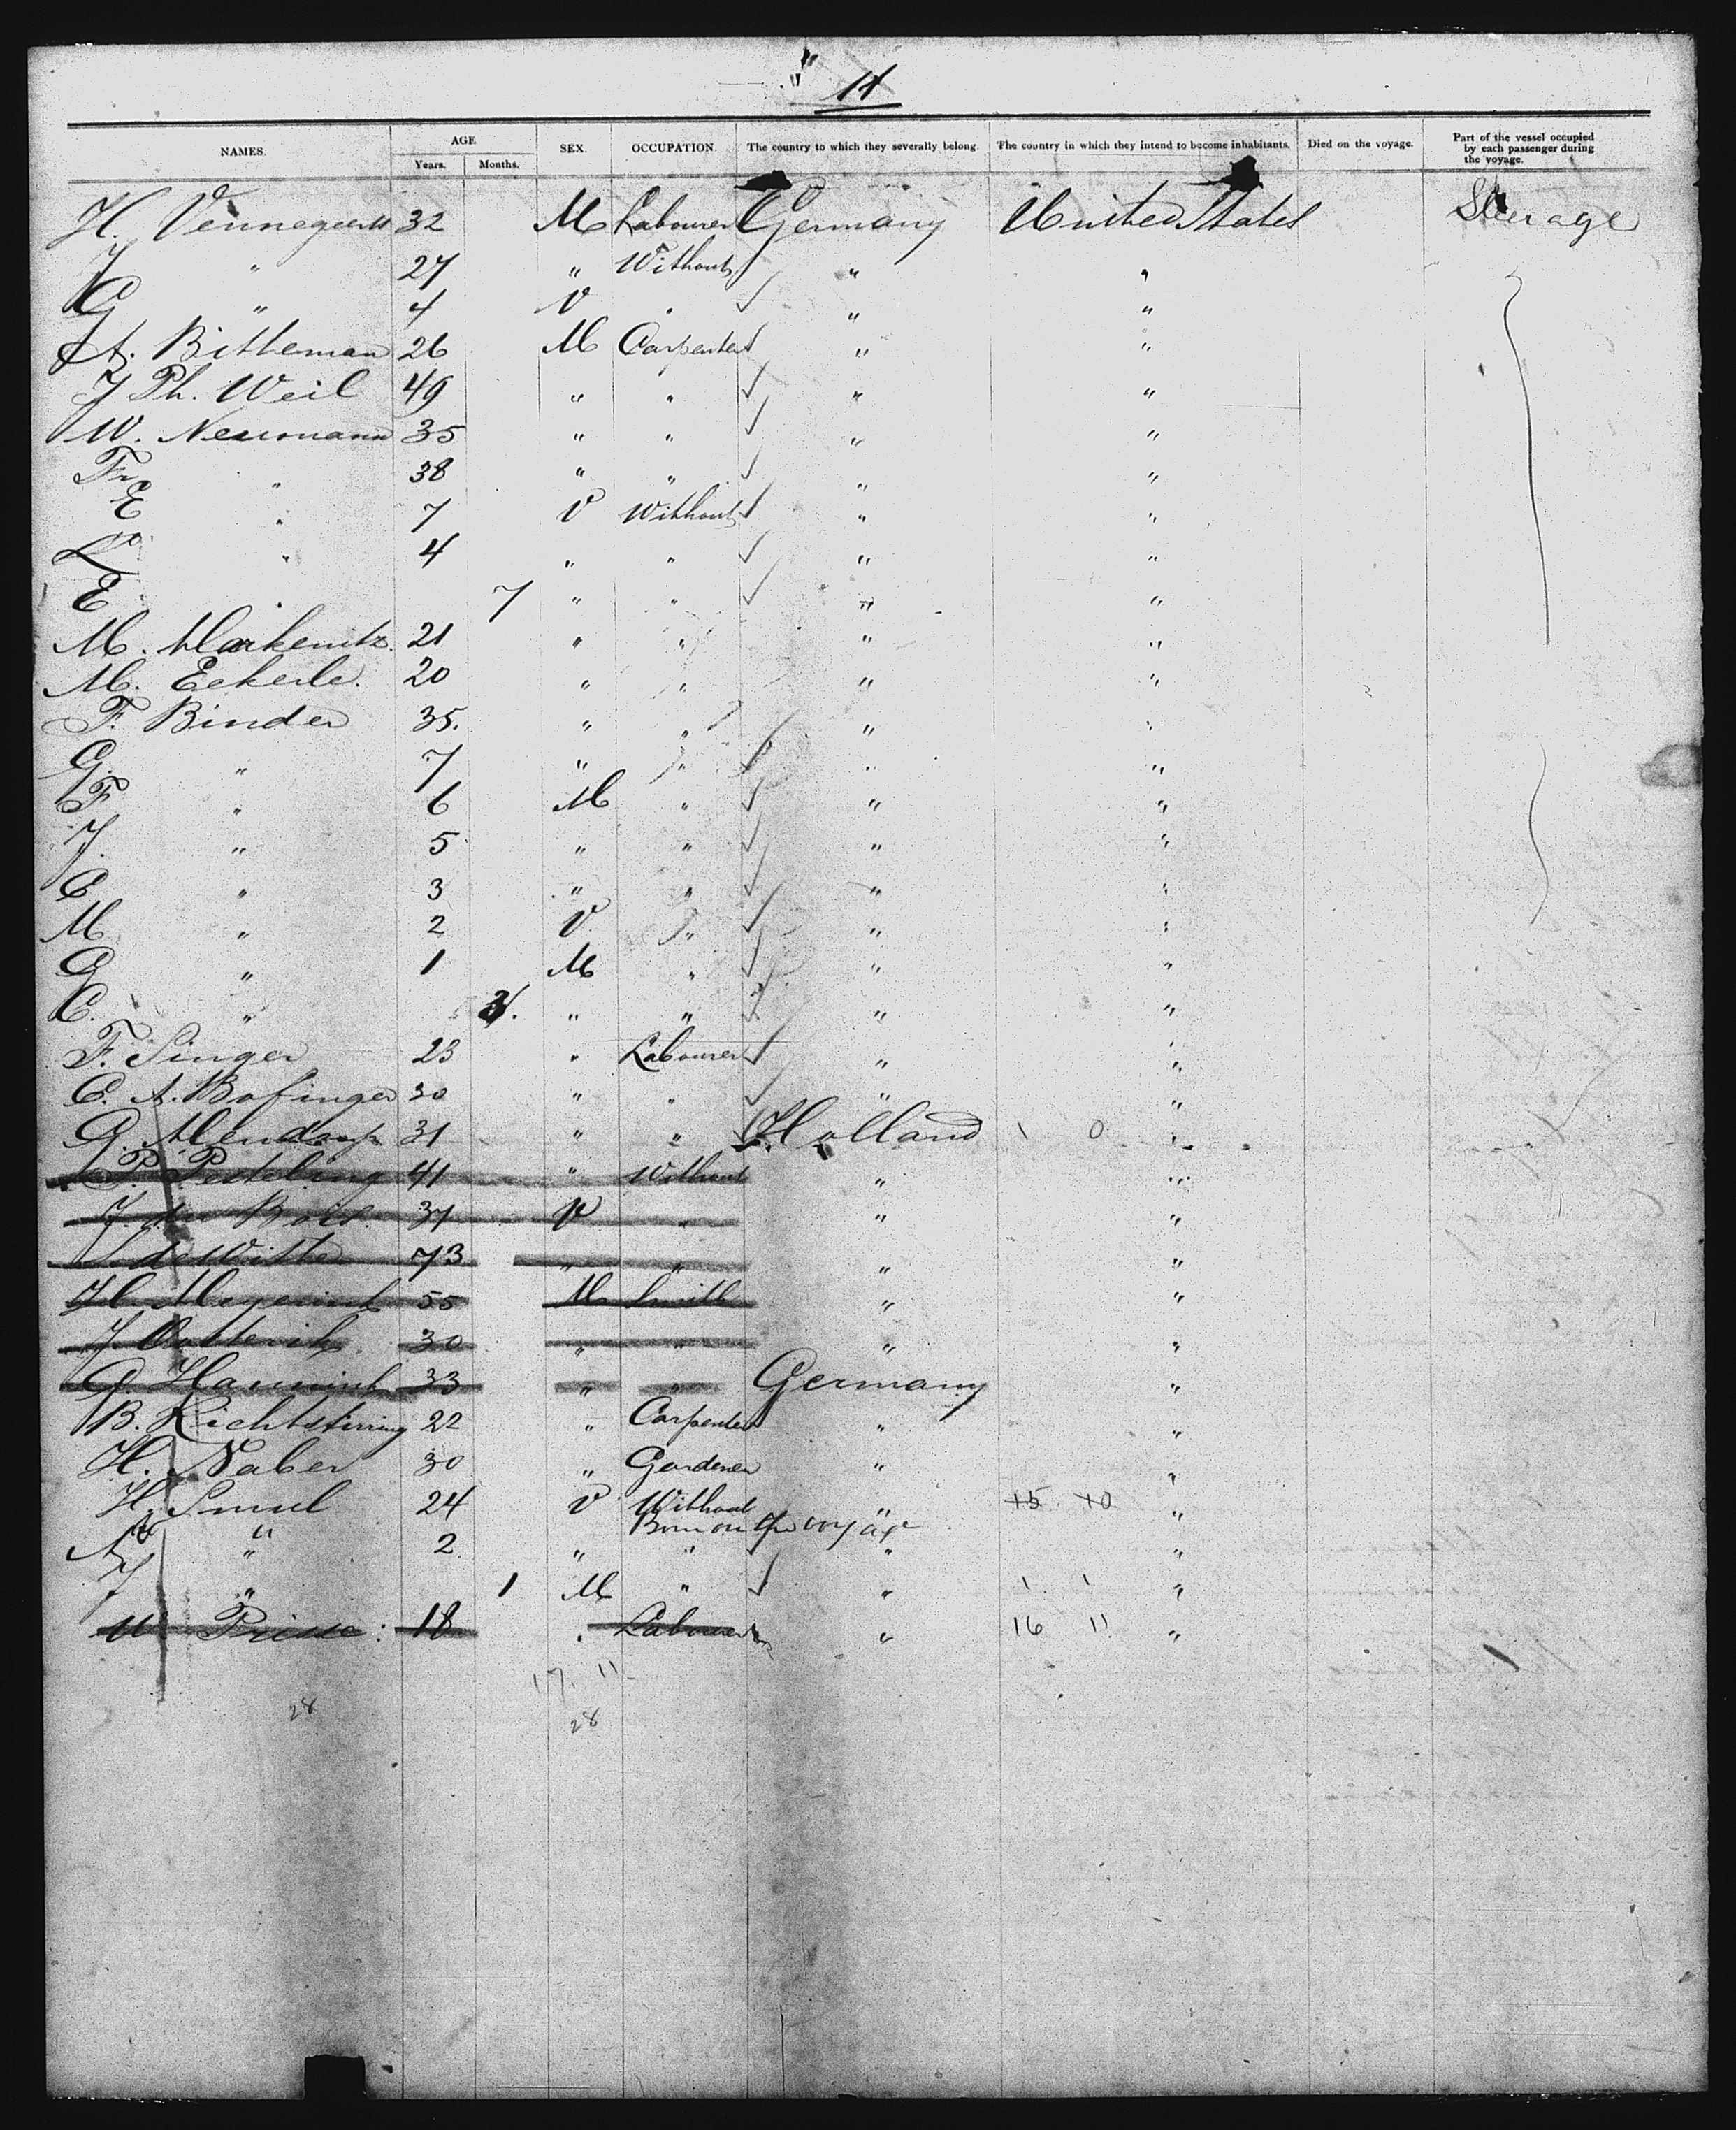 11
NAMES. AGE Years. Months. SEX. OCCUPATION. The country to which they severally belong. The country in which they intend to become inhabitants. Died on the voyage. Part of the vessel occupied by each passenger during the voyage.
H. Vennegeerts 32 M Labourer Germany United States Steerage
J " 27 " Without " "
G " 4 V " " "
A. Bitteman 26 M Carpenter " "
J Ph. Weil 49 " " " "
W. Neumann 35 " " " "
Fr " 38 " " " "
E " 7 V Without " "
L " 4 " " " "
E " 7 " " " "
M. Markenitz. 21 " " " "
M. Eckerle. 20 " " " "
F. Binder 35. " " " "
G. " 7 " " " "
F " 6 M " " "
J. " 5 " " " "
C " 3 " " " "
M " 2 V " " "
G " 1 M " " "
C. " 3. " " " "
F. Singer 23 " Labourer " "
C. A. Bofinger 30 " " " "
G. Mendorp 31 " " Holland 1 0 "
P. Pesteling 41 " Without " "
J. du Bois. 37 V " " "
de Witte 73 " " " "
H. Meyerink 55 M Smith " "
J. 30 " " " "
G. Harmink 33 " " Germany "
B. Richtstiring 22 " Carpenter " "
H. Naber 30 " Gardener " "
H. Smul 24 V Without " 15 10 "
Born on the voyage
A " 2 " " " "
J " 1 M " " 1 1 "
W Prisse : 18 " Labourer " 16 11 "
17. 11
28 28